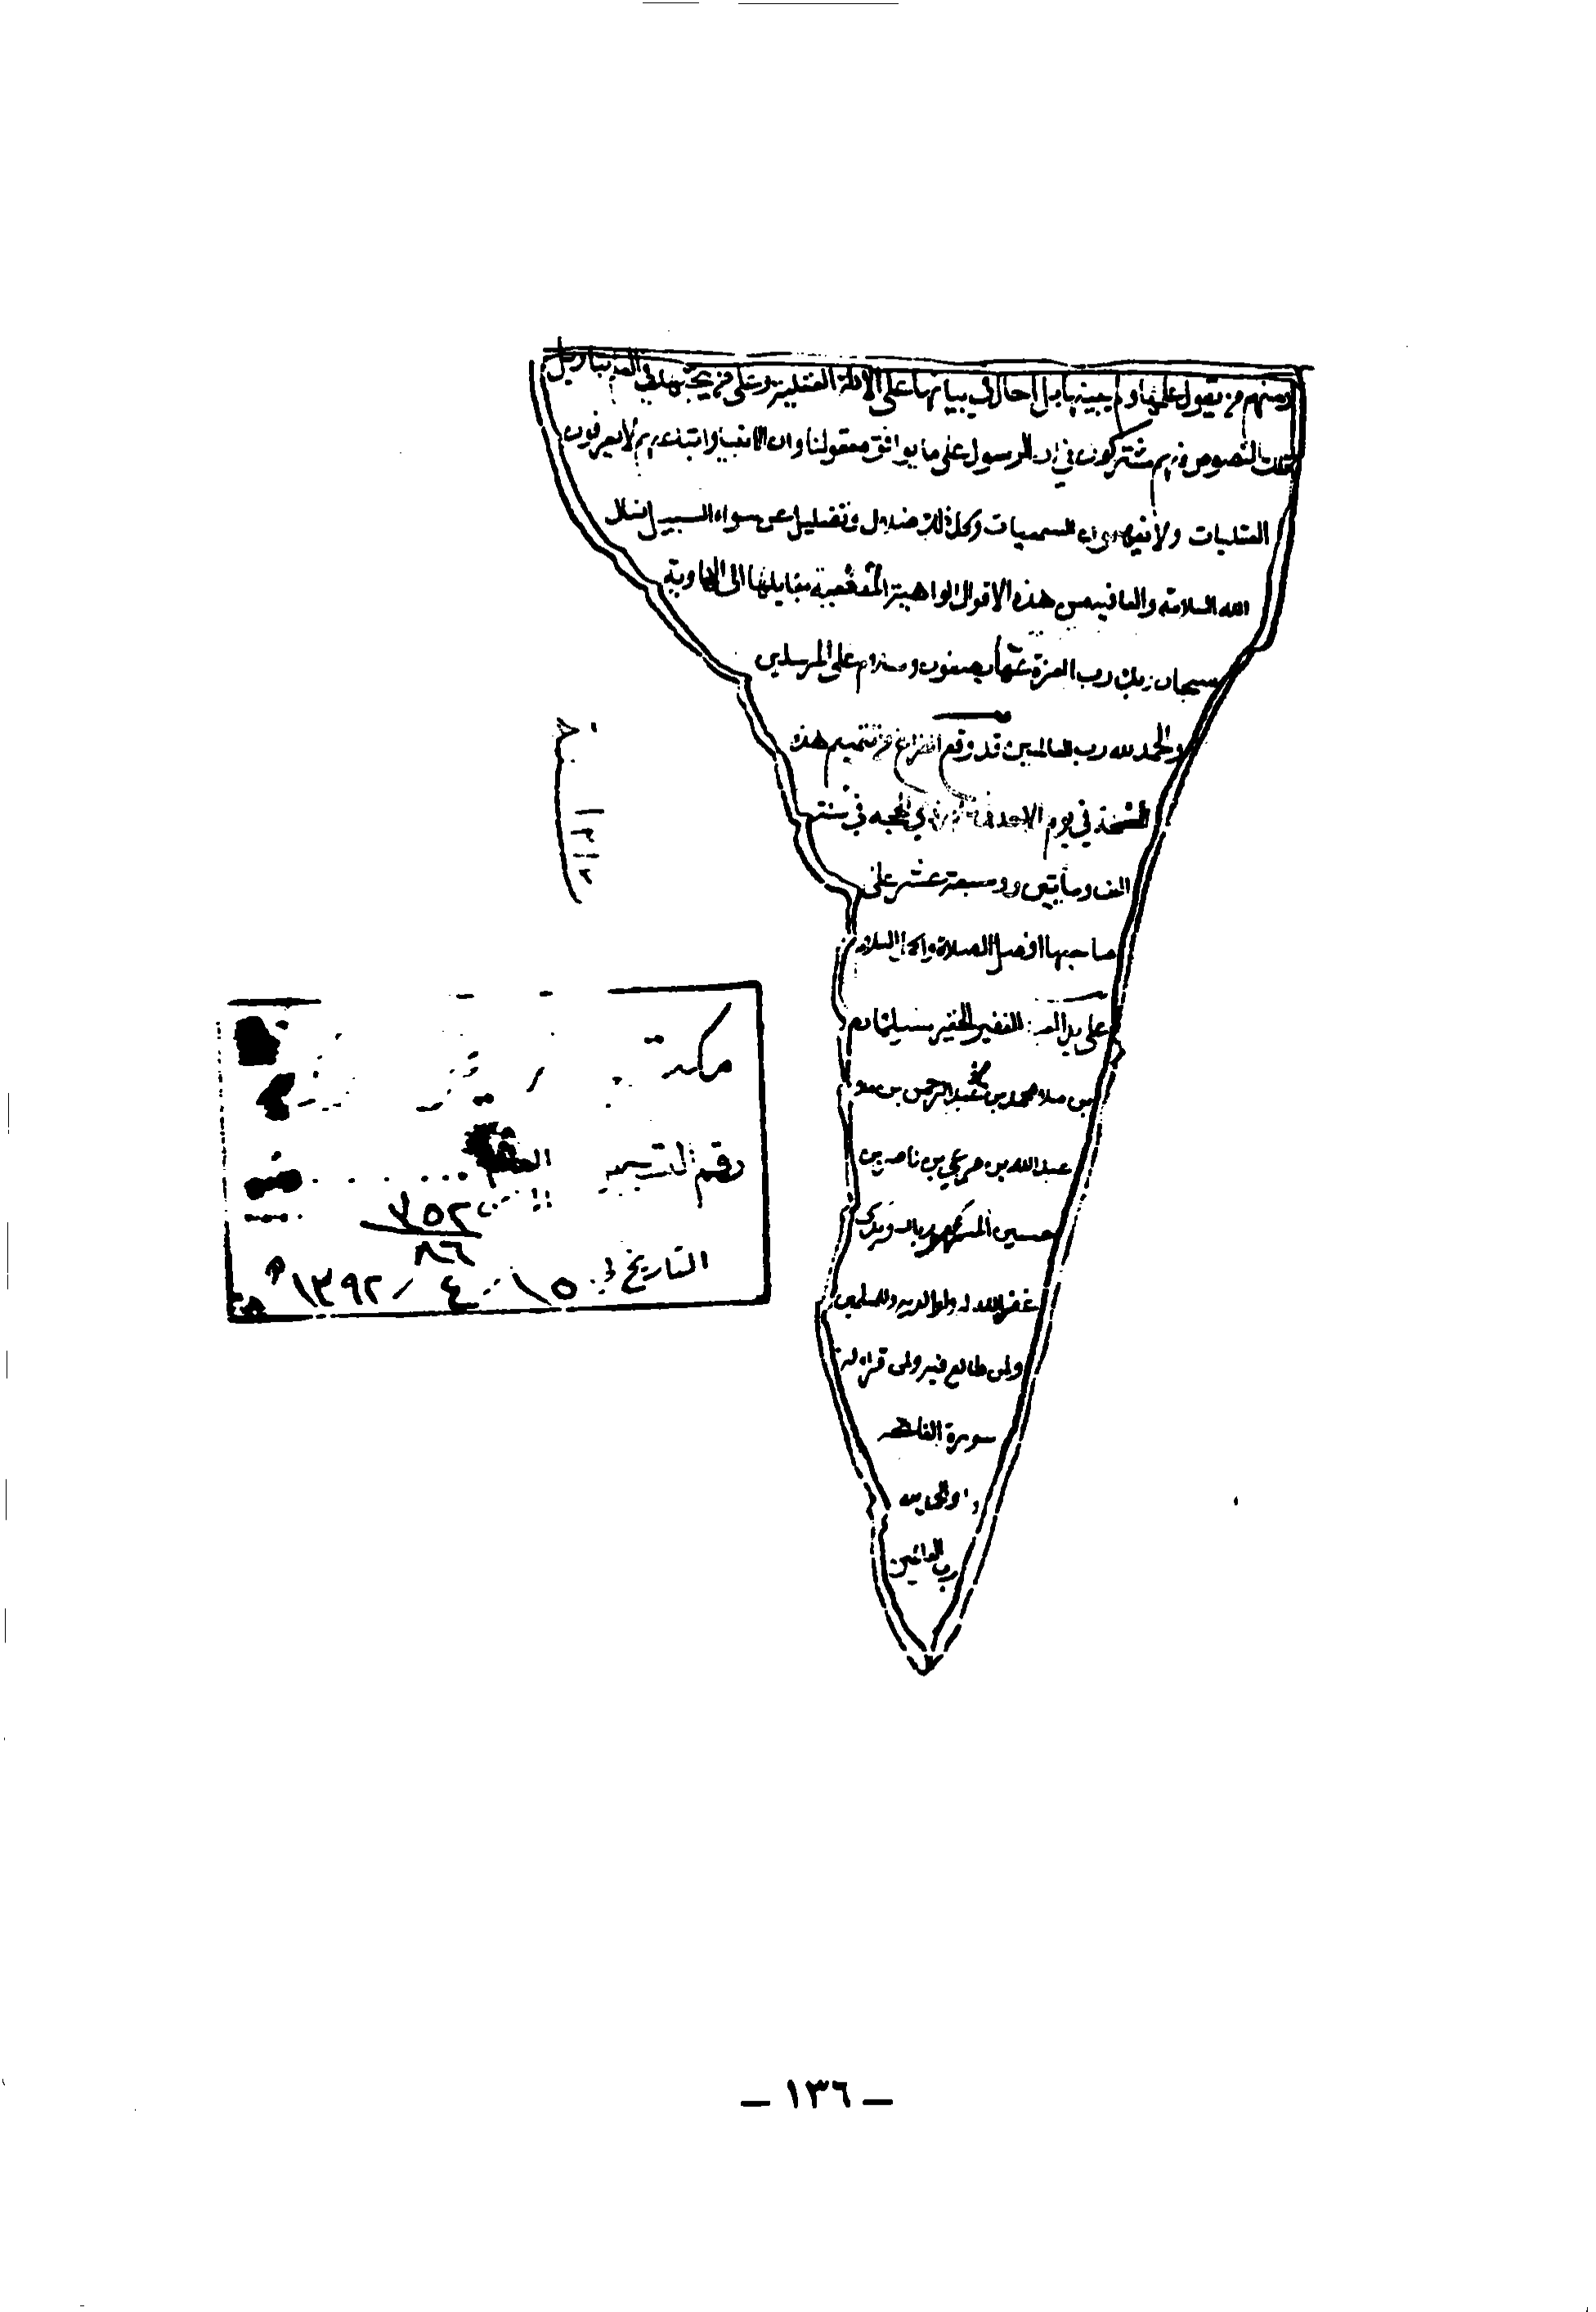 ومنهم من يقول علمها ولم يبينها بل احال في بيانها على الادلة العقلية وعلى من يجتهد في العلم بتاويل
تلك النصوص فهم مشتركون في ان الرسول على ما يوافق معقولنا وان الانبيا واتباعهم لا يعرفون
العقليات ولا يفهمون السمعيات وكل ذلك ضلال وتضليل عن سواء السبيل نسال
الله السلامة والعافيه من هذه الاقوال الواهية المفضية بقايلها الى الهاوية
سبحان ربك رب العزة عما يصفون وسلام على المرسلين
والحمد لله رب العالمين قد وقع الفراغ من تتميم هذه
النسخة في يوم الاحد ذي الحجه في سنة
الف ومأتين وسبعة عشر على
صاحبها افضل الصلاة واكمل السلام
على يد الفقير الحقير سليمان
بن ملا محمد بن عبد الرحمن بن ملا
عبد الله بن بن ناصر بن
حسين المشهور
غفر الله له ولوالديه وللمسلمين
ولمن طالع فيه ولمن قراء له
سورة الفاتحه
والحمد لله
رب العالمين
١٢١٢
مكتبة
رقم التسجيل
٧٥٢
٨٦
التاريخ في ١٥ / ٤ / ١٣٩٢ هـ
— ١٣٦ —